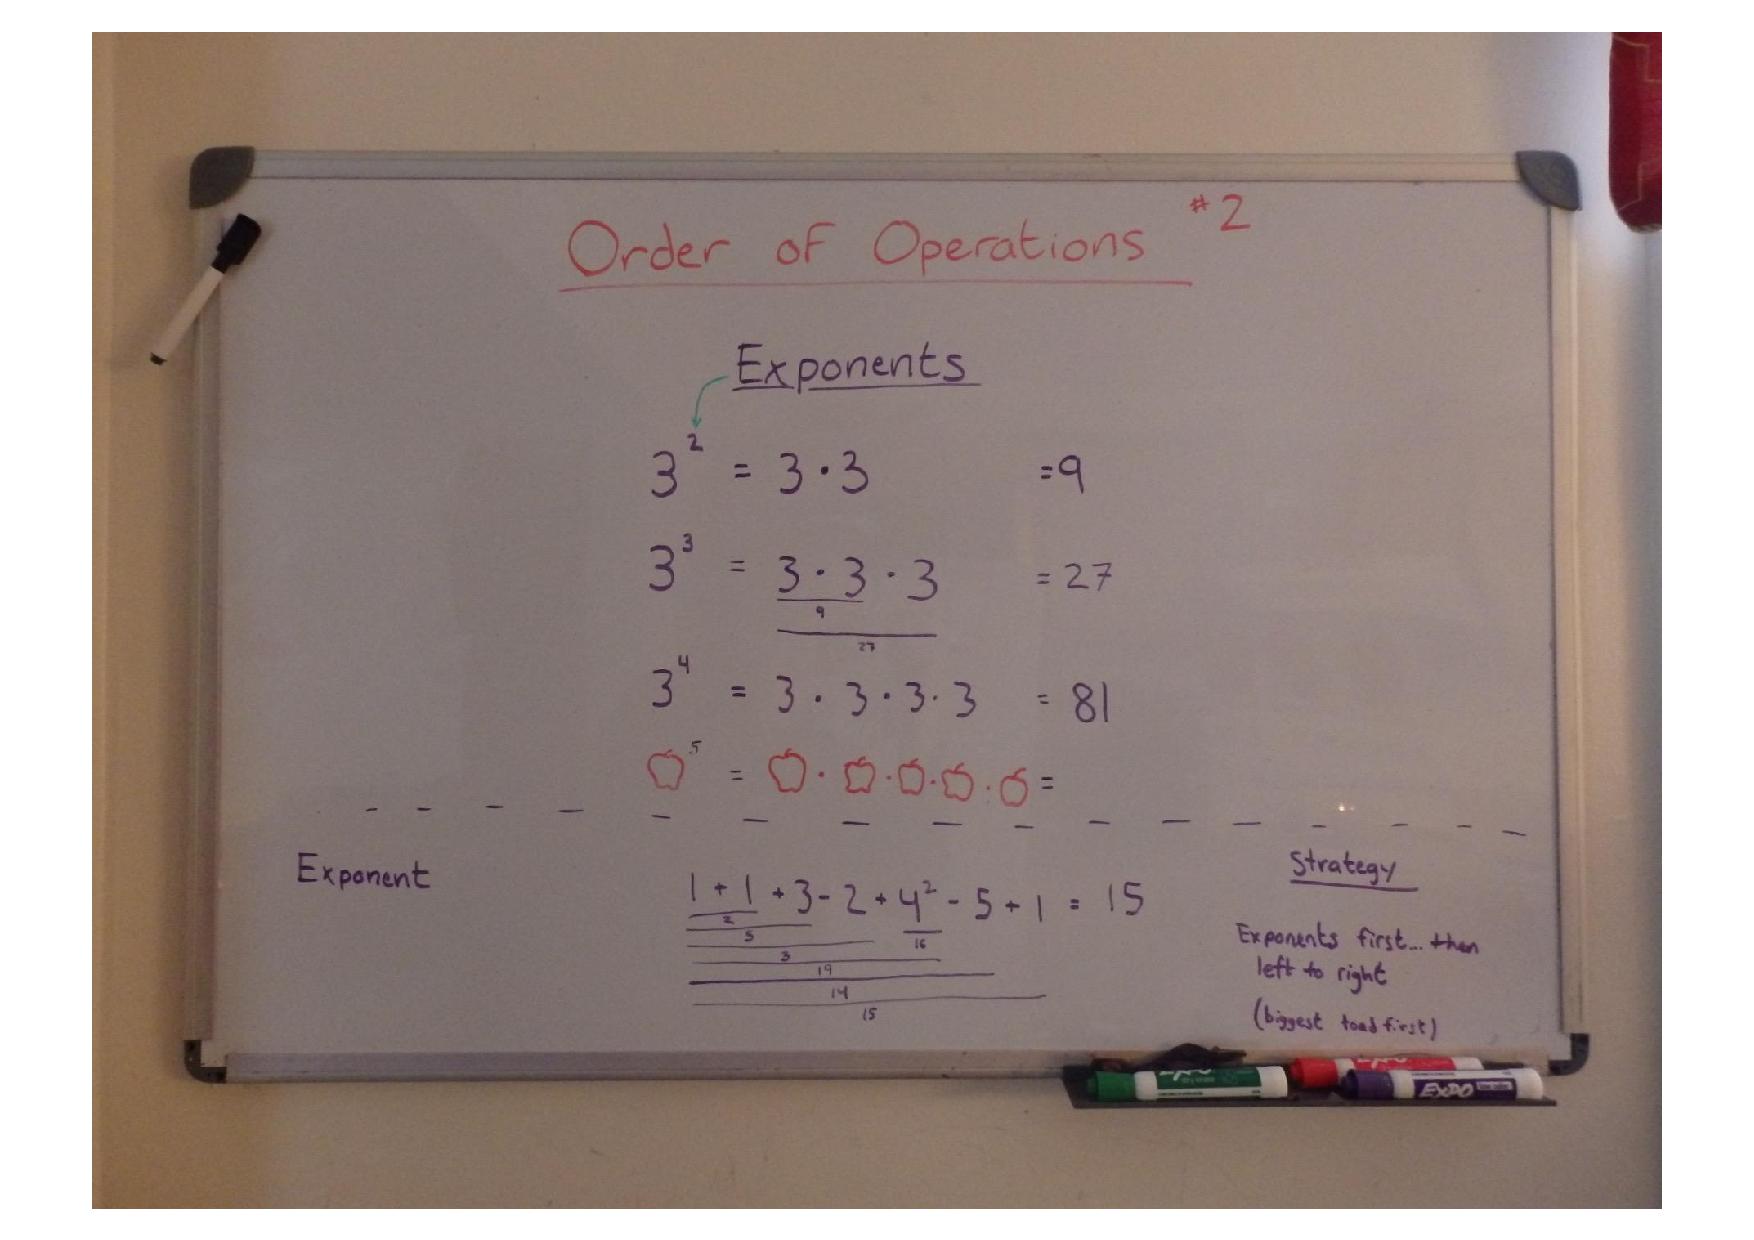 Order of Operations #2
Exponents
3² = 3 · 3 = 9
3³ = 3 · 3 · 3 = 27
9
27
3⁴ = 3 · 3 · 3 · 3 = 81
5 = · · · · =
Exponent
1 + 1 + 3 - 2 + 4² - 5 + 1 = 15
2
5
16
3
19
14
15
Strategy
Exponents first... then
left to right
(biggest toad first)
EXPO
EXPO
EXPO